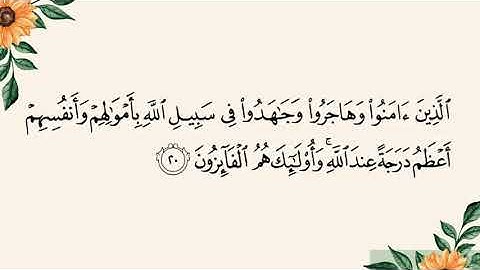 الَّذِينَ ءَامَنُوا۟ وَهَاجَرُوا۟ وَجَـٰهَدُوا۟ فِى سَبِيلِ اللَّهِ بِأَمْوَٰلِهِمْ وَأَنفُسِهِمْ
أَعْظَمُ دَرَجَةً عِندَ اللَّهِ ۚ وَأُو۟لَـٰٓئِكَ هُمُ الْفَآئِزُونَ ۝٢٠